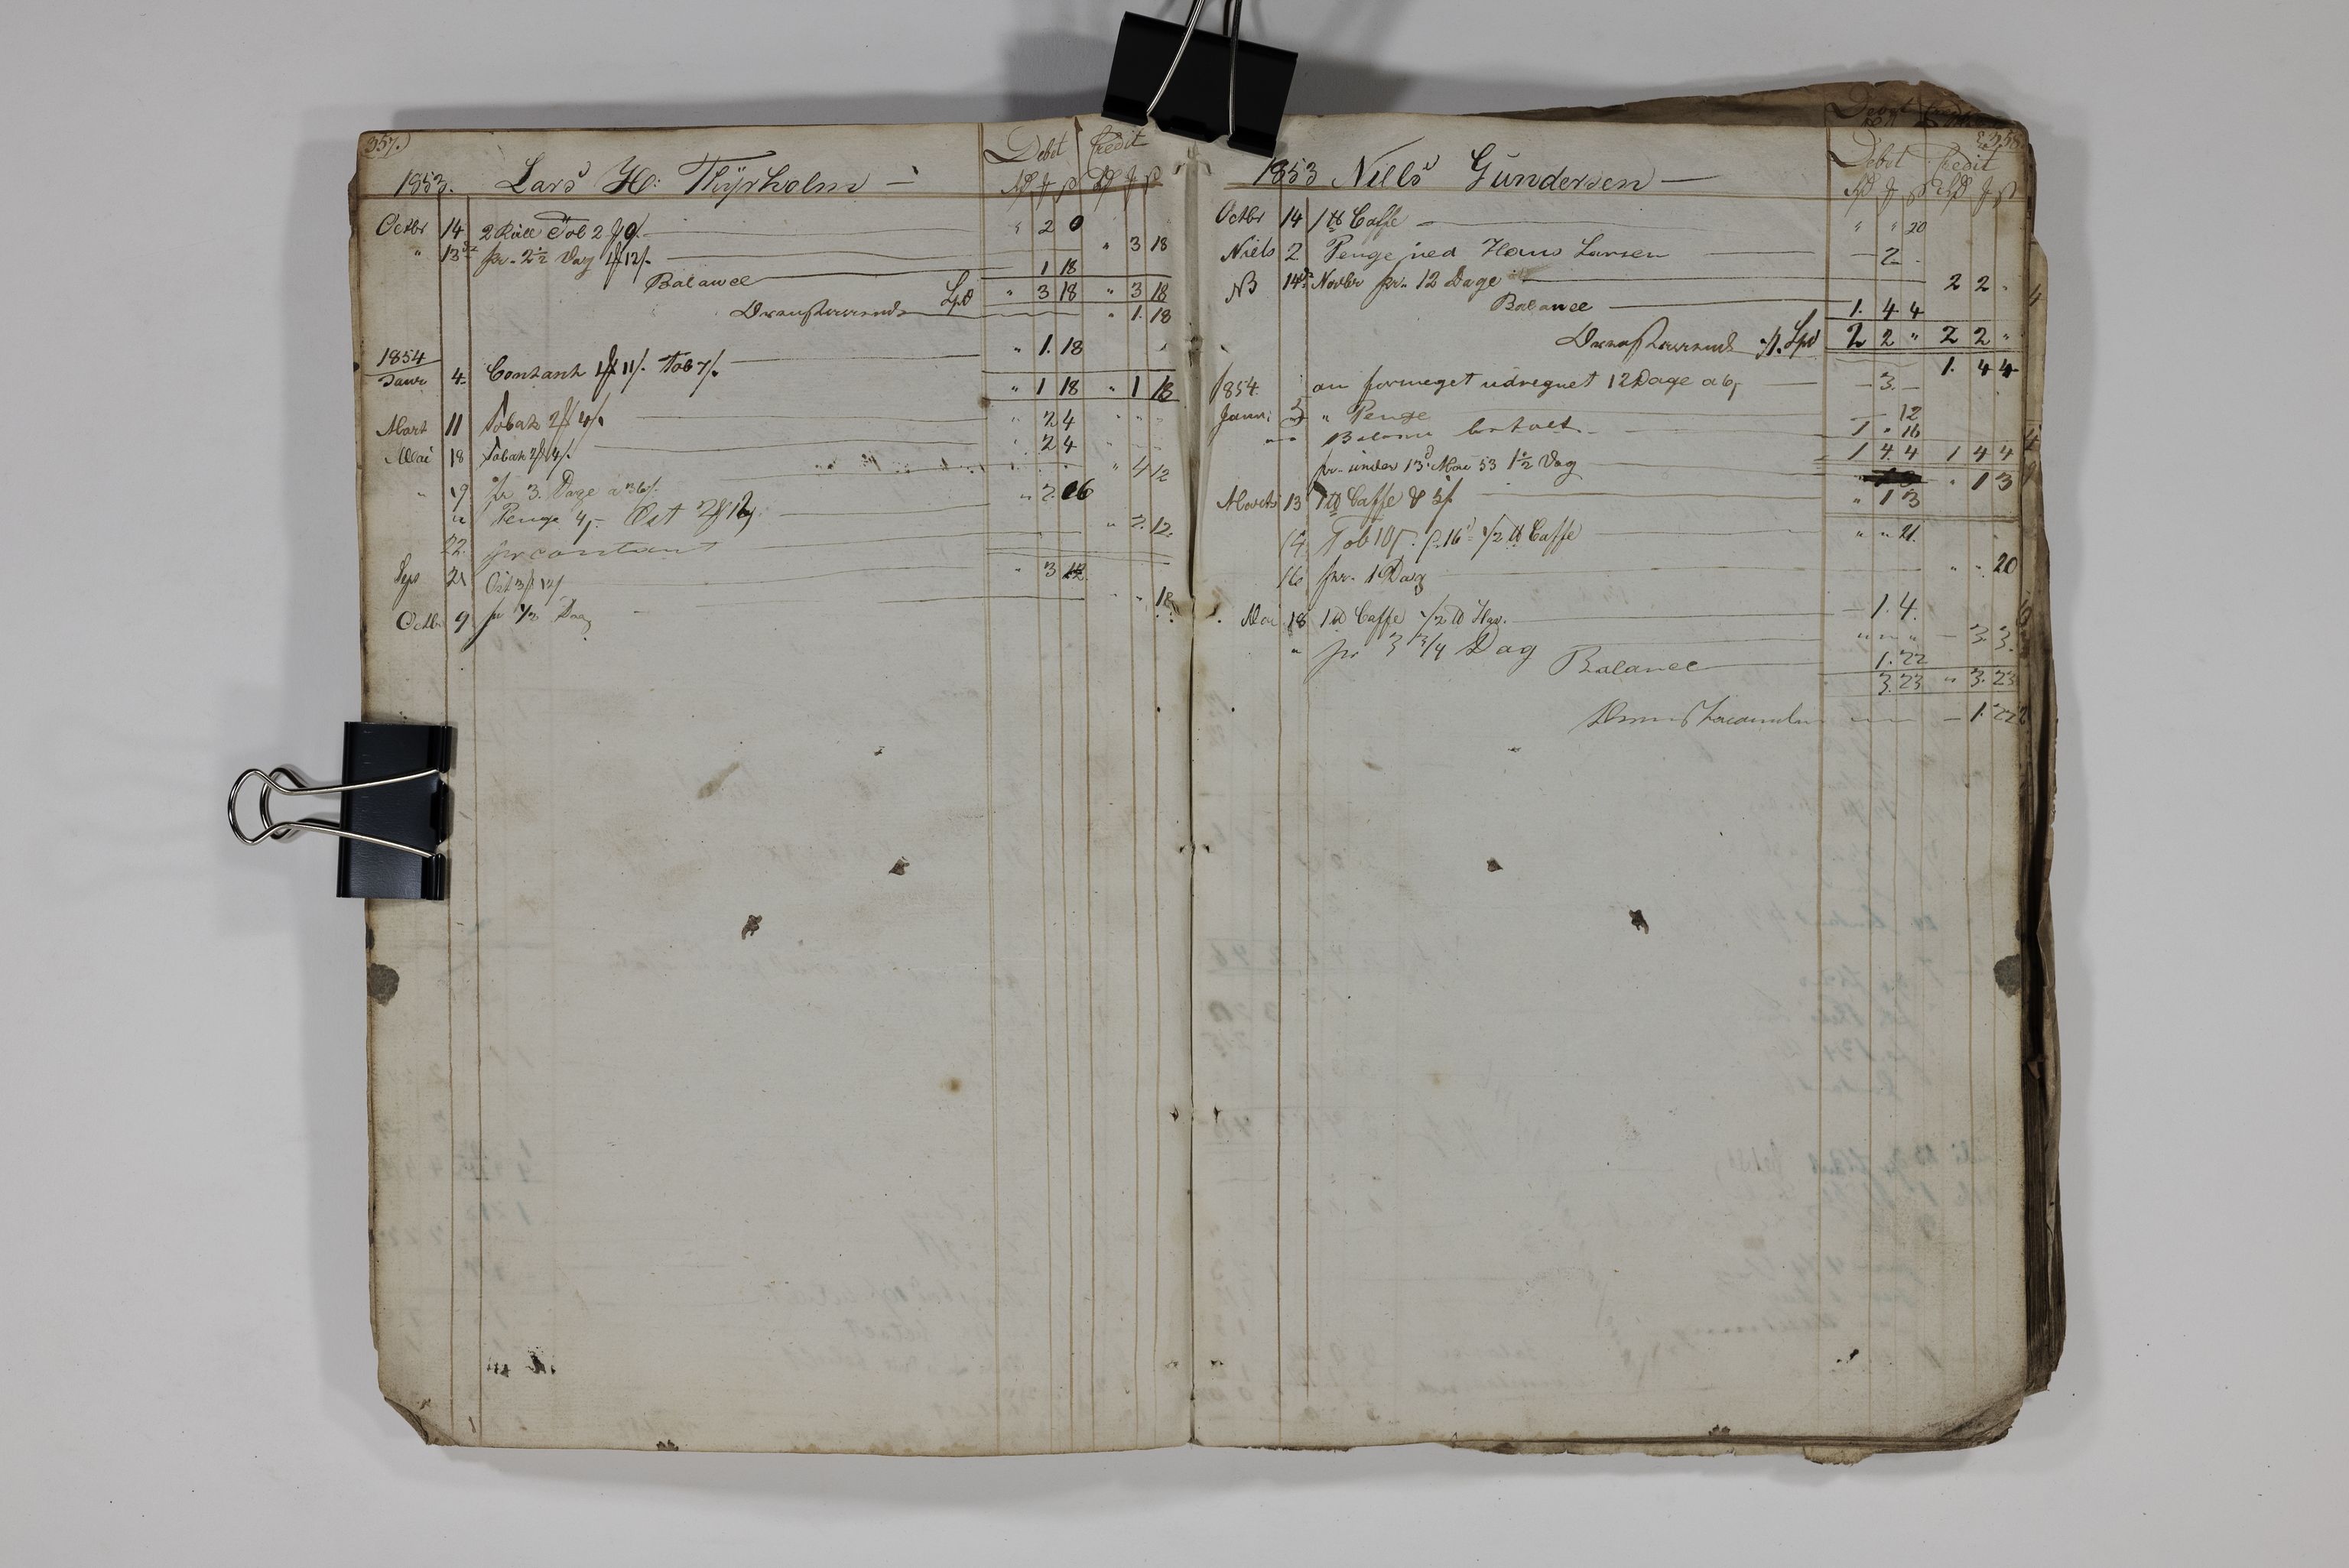 357.
Debet Credit
1853. Lars H: Thÿrholm —
Octbr 14 2 Rull Tob 2 0 " 2 0
" 13 pr. 2½ Dag 12/. " 3 18
Balance 1 18
Spd " 3 18 " 3 18
" 1. 18
1854 " 1. 18
Janr 4 Contant 11/. Tob 7/. " 1 18 " 1 18
Mart 11 Tobak 2 4/. " 2 4
Mai 18 Tobak 2 4/. " 2 4
" 19 pr 3. Dage a 36/. " 4 12
" Penge 4, Ost 2 " 2. 06
22. pr contant " 2. 12.
Sep 21 Ost 3 12/ " 3 12
Octbr 9 pr ½ Dag " " 18
358
Debet Credit
1853 Niels Gündersen —
Octbr 14 1 ℔ Caffe " " 20
Niels 2 Penge ved Hans Larsen — 2 -
NB 14 Novbr pr. 12 Dage 2 2 "
Balance 1. 4 4
Spd 2 2 " 2 2 "
1. 4 4
1854. an formeget udregnet 12 Dage a 6, — 3. —
Janr: 3 " Penge — — 12
" " Balance betalt. 1 " 16
1 4. 4 1 4 4
pr. under 13 Mai 53 1½ Dag " 1 3
Marts 13 1 ℔ Caffe " 1 3
14 Tob 10 ½ ℔ Caffe " " 21.
16 pr. 1 Dag " " 20
Mai 18 1 ℔ Caffe ½ ℔ — 1. 4.
" pr 3 3/4 Dag " " " — 3. 3.
Balance 1. 22
3. 23 " 3. 23
— 1. 22